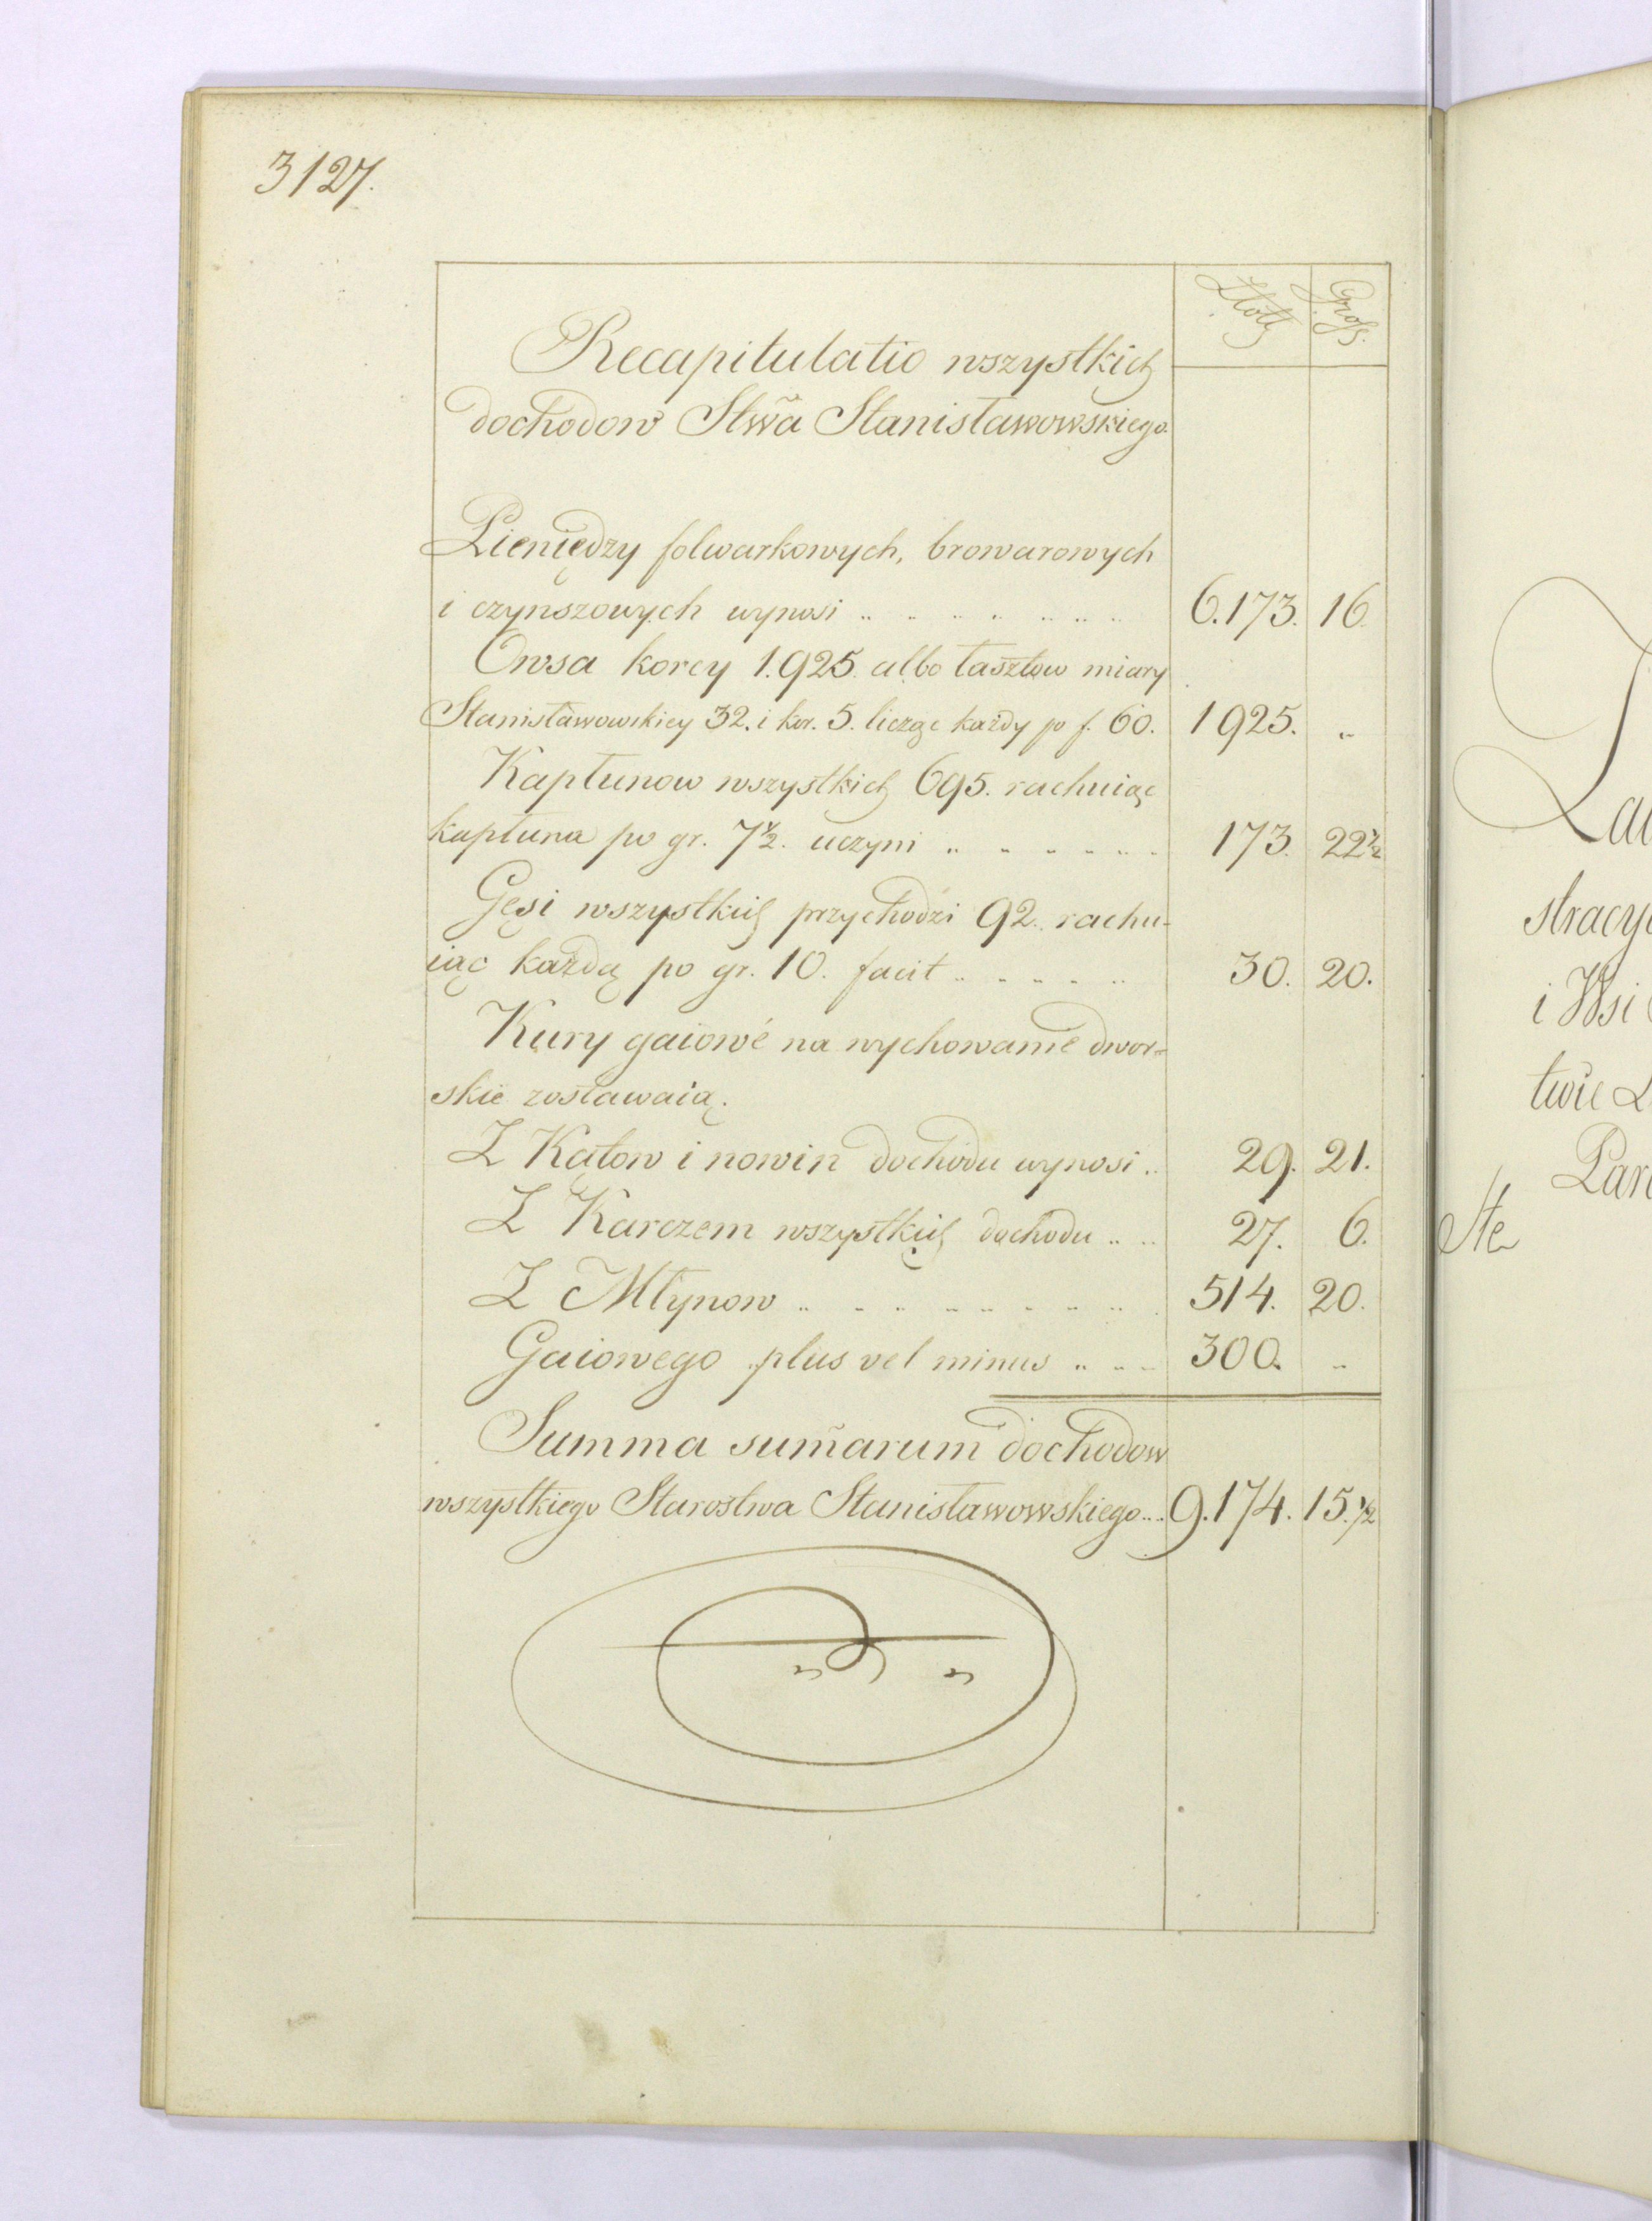 3127.
Złote Grosz.
Recapitulatio wszystkich
dochodow Stwa Stanisławowskiego.
Pieniędzy folwarkowych, browarowych
i czynszowych wynosi .. .. .. .. .. .. .. 6.173. 16.
Owsa korcy 1.925. albo łasztow miary
Stanisławowskiey 32. i kor. 5. licząc każdy po f. 60. 1925. ..
Kapłunow wszystkich 695. rachuiąc
kapłuna po gr. 7½. uczyni .. .. .. .. .. .. 173. 22½
Gęsi wszystkich przychodzi 92. rachu-
iąc każdą po gr. 10. facit .. .. .. .. .. 30. 20.
Kury gaiowé na wychowanie dwor=
skie zostawaią.
Z Kątow i nowin dochodu wynosi .. 29. 21.
Z Karczem wszystkich dochodu .. .. 27. 6.
Z Młynow .. .. .. .. .. .. .. .. 514. 20.
Gaiowego plus vel minus .. .. .. 300. ..
Summa sum̃arum dochodow
wszystkiego Starostwa Stanisławowskiego .. 9.174. 15.½
stracyi
i Wsi
twie
Ste